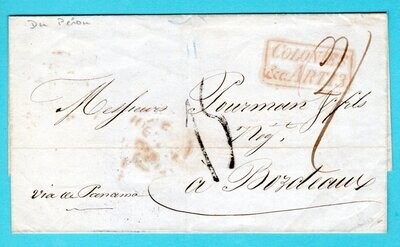 Du Pérou
COLONIES
&c. ART. 13
Messieurs Pourman & fils
Nég.
à Bordeaux
via de Panama
15